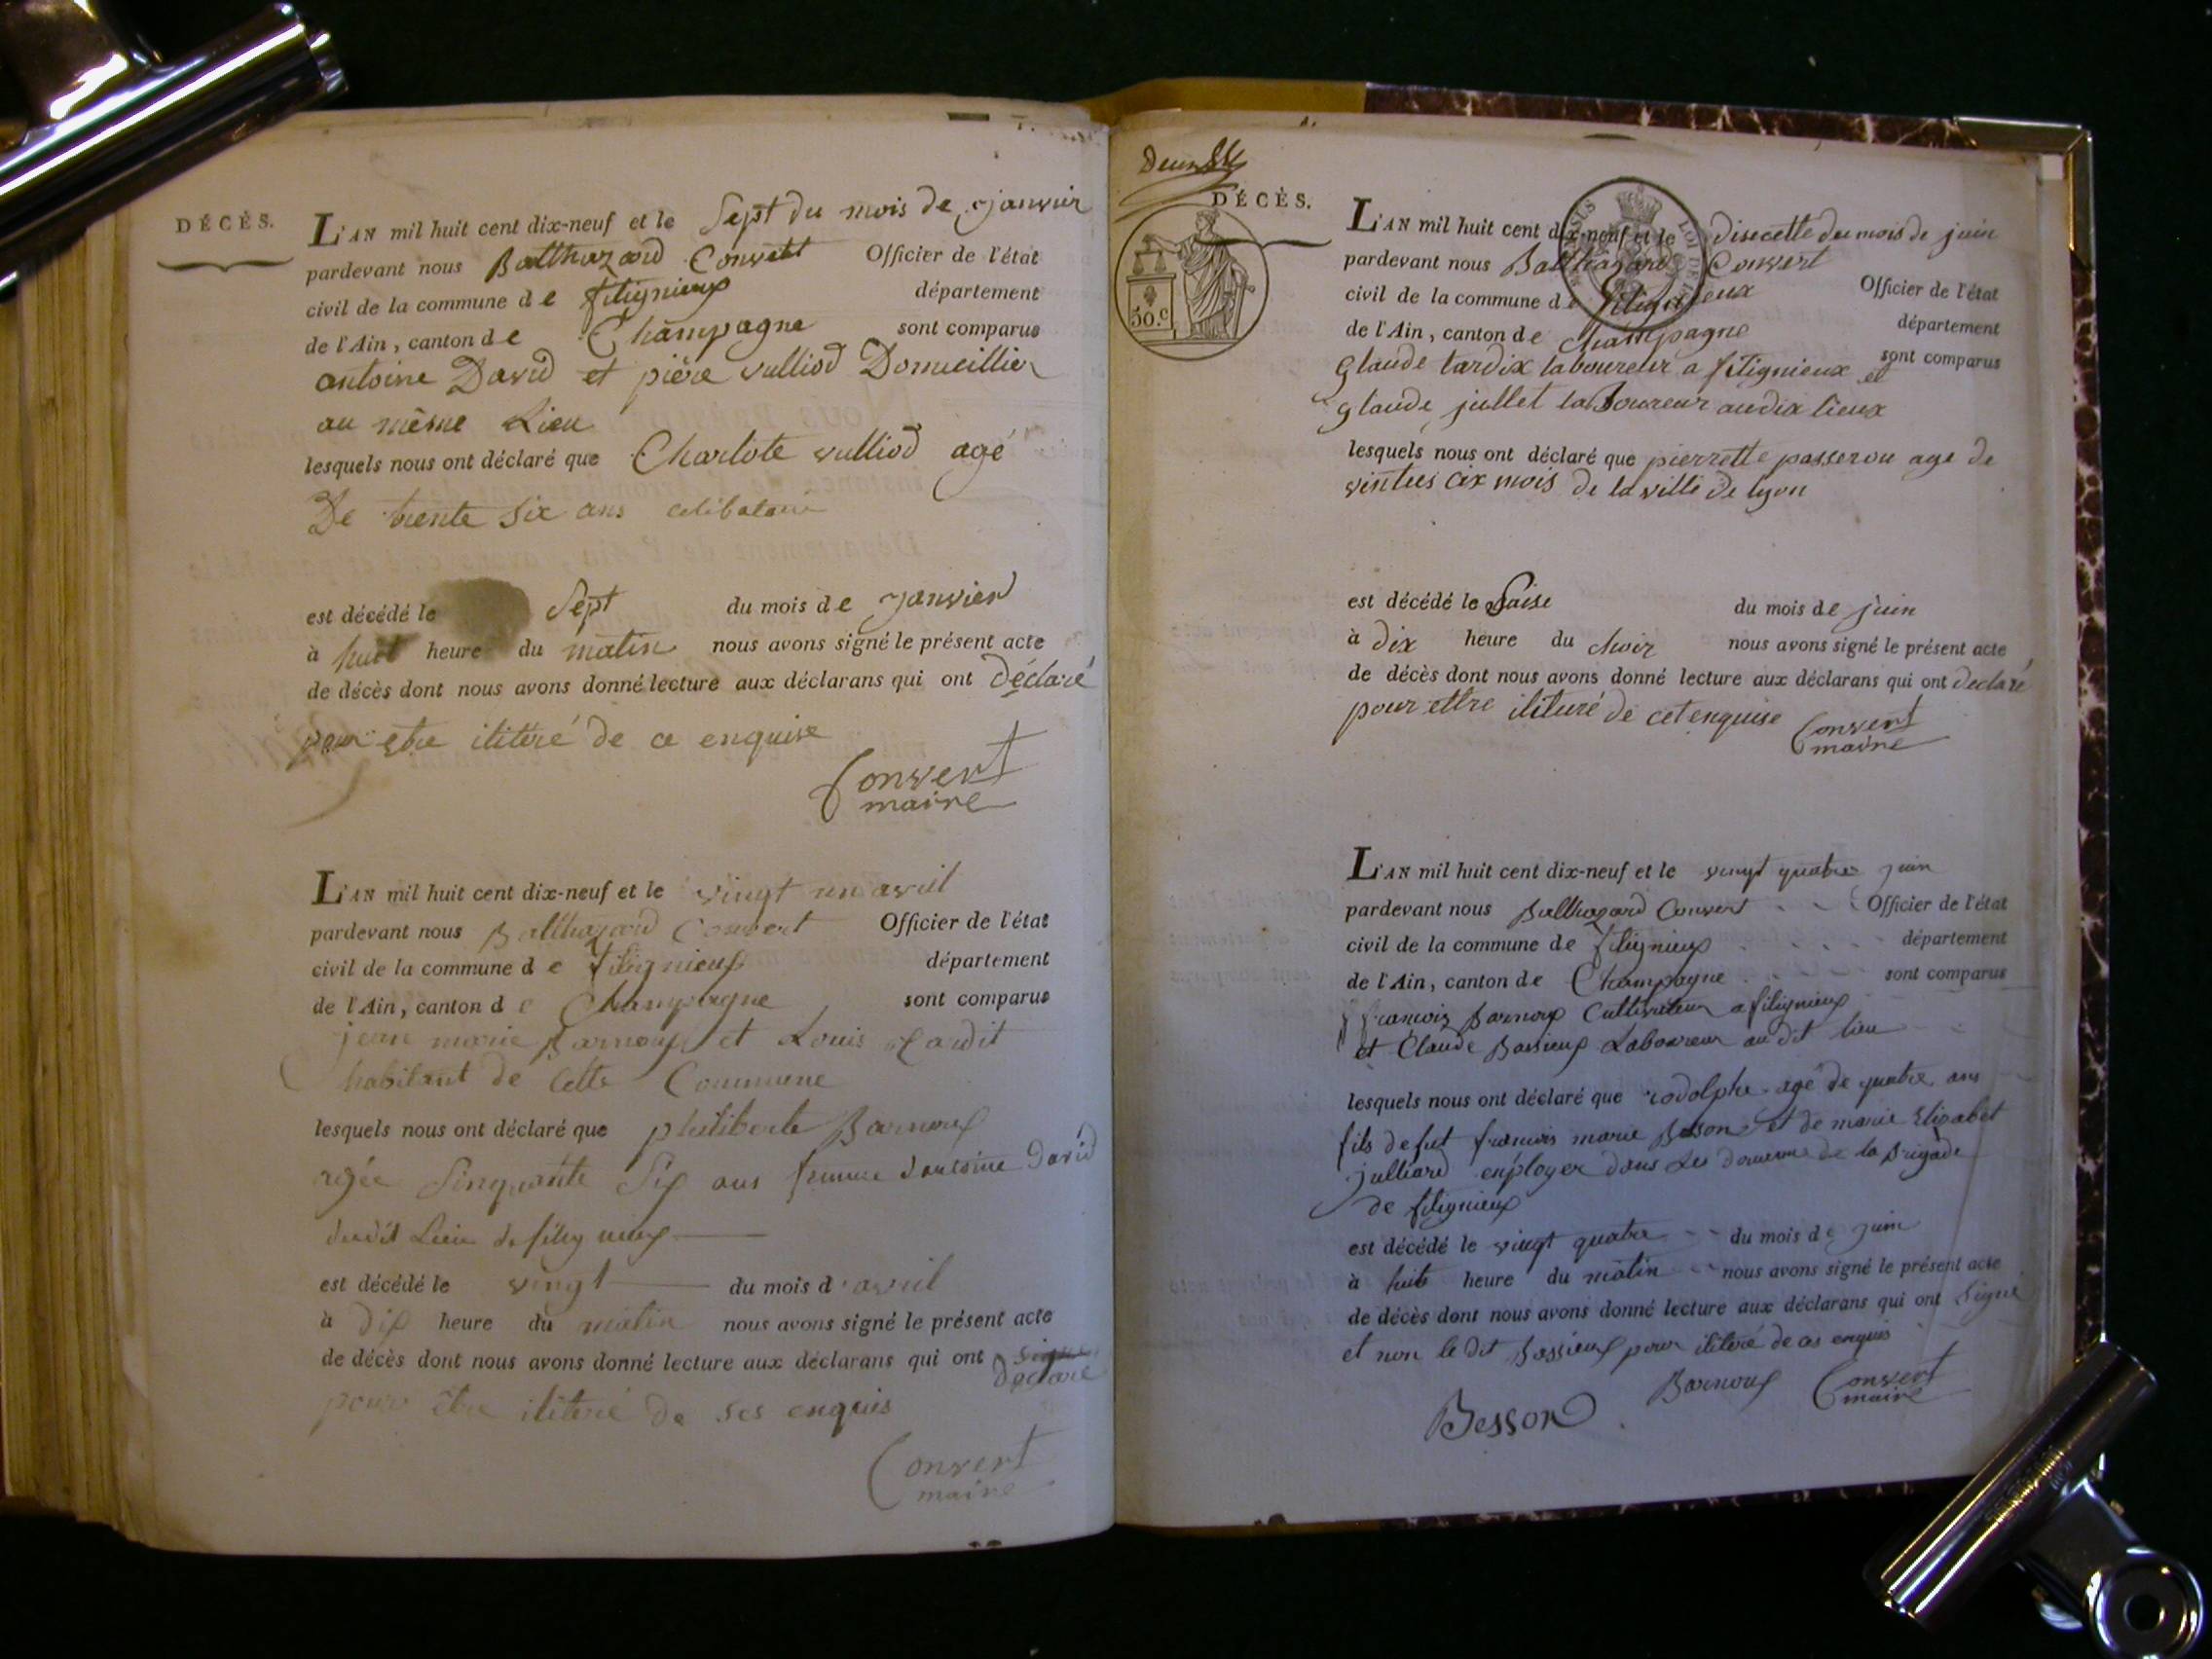 DÉCÈS.
L'AN mil huit cent dix-neuf et le Sept du mois de janvier
pardevant nous Balthazard Convert Officier de l'état
civil de la commune de fitignieux département
de l'Ain, canton de Champagne sont comparus
antoine David et pière vulliod Domicillier
au même Lieu
lesquels nous ont déclaré que Charlote vulliod agé
De trente six ans celibataire
est décédé le Sept du mois de janvier
à huit heure du matin nous avons signé le présent acte
de décès dont nous avons donné lecture aux déclarans qui ont déclaré
pour estre ilitéré de ce enquise
Convert
maire
L'AN mil huit cent dix-neuf et le vingt un avril
pardevant nous Balthazard Convert Officier de l'état
civil de la commune de fitignieux département
de l'Ain, canton de Champagne sont comparus
jean marie Barnoux et Louis Tardit
habitant de Cette Commune
lesquels nous ont déclaré que philiberte Barnoux
agée Sinquante Six ans femme d'antoine David
dudit Lieu de fitignieux
est décédé le vingt du mois d'avril
à dix heure du matin nous avons signé le présent acte
de décès dont nous avons donné lecture aux déclarans qui ont signé
Déclaré
pour être ilitéré de ses enquis
Convert
maire
DÉCÈS.
50.c
L'AN mil huit cent dix-neuf et le disecette du mois de juin
pardevant nous Balthazard Convert
civil de la commune de fitignieux Officier de l'état
de l'Ain, canton de champagne département
glaude tardix laboureur a fitignieux et sont comparus
glaude jullet laBoureur audix lieux
lesquels nous ont déclaré que pierrette passerou age de
vinteis cix mois de la ville de lyon
est décédé le Saise du mois de juin
à dix heure du choir nous avons signé le présent acte
de décès dont nous avons donné lecture aux déclarans qui ont declaré
pour ettre ilituré de cet enquise
Convert
maire
L'AN mil huit cent dix-neuf et le vingt quatre juin
pardevant nous Balthazard Convert Officier de l'état
civil de la commune de fitignieux département
de l'Ain, canton de Champagne sont comparus
francois Barnoux Cultivateur a fitignieux
et Claude Bassieux Laboureur au dit lieu
lesquels nous ont déclaré que rodolphe agé de quatre ans
fils de fut francois marie Besson et de marie Elizabet
julliard employer dans Les douennes de la Brigade
de fitignieux
est décédé le vingt quatre du mois de juin
à huit heure du matin nous avons signé le présent acte
de décès dont nous avons donné lecture aux déclarans qui ont Signé
et non le dit Bassieux pour ilitéré de ces enquis
Barnoux Convert
maire
Besson